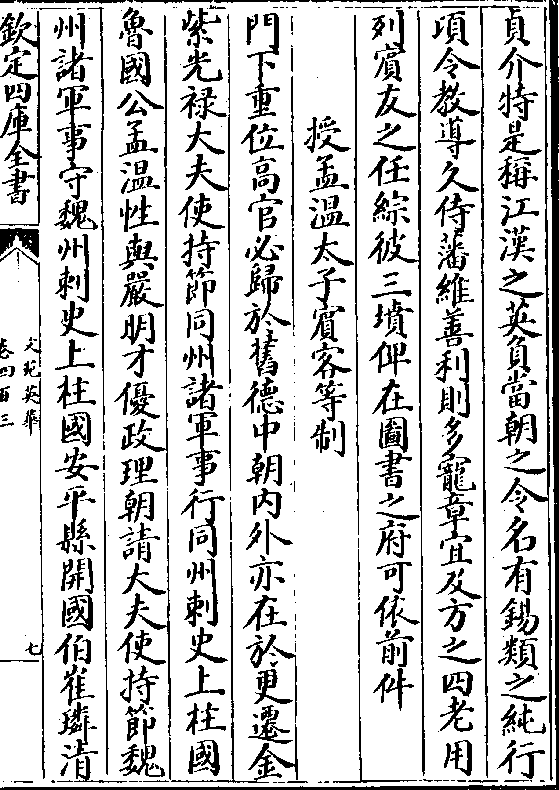 貞介特是稱江漢之英負當朝之令名有錫類之純行
項令教導久侍藩維善利則多寵章宜及方之四老用
列賓友之任綜彼三墳俾在圖書之府可依前件
授孟温太子賓客等制
門下重位髙官必歸於舊德中朝内外亦在於更遷金
紫光禄大夫使持節同州諸軍事行同州刺史上柱國
魯國公孟温性與嚴明才優政理朝請大夫使持節魏
州諸軍事守魏州刺史上柱國安平縣開國伯崔璘清
欽定四庫全書
文苑英華
卷四百三
七